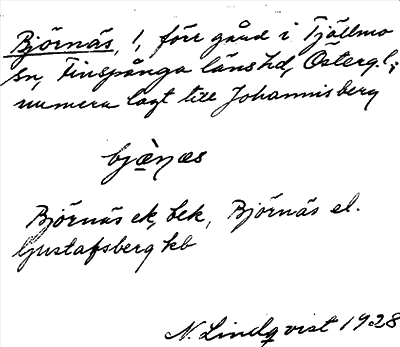 Björnäs, 1, förr gård i Tjällmo
sn, Finspånga läns hd, Österg.l;
numera lagt till Johannisberg
bjæ̀ɳæs
Björnäs ek, bek, Björnäs el.
Gustafsberg kb
N. Lindqvist 1928